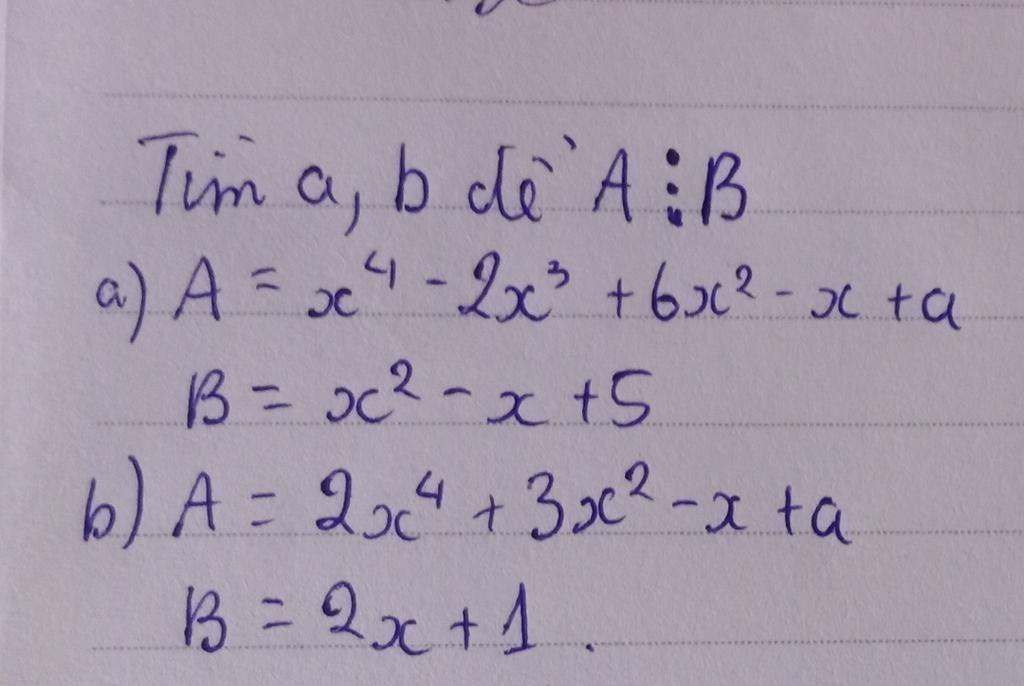 Tìm a, b để A ⋮ B
a) A = x⁴ - 2x³ + 6x² - x + a
B = x² - x + 5
b) A = 2x⁴ + 3x² - x + a
B = 2x + 1.